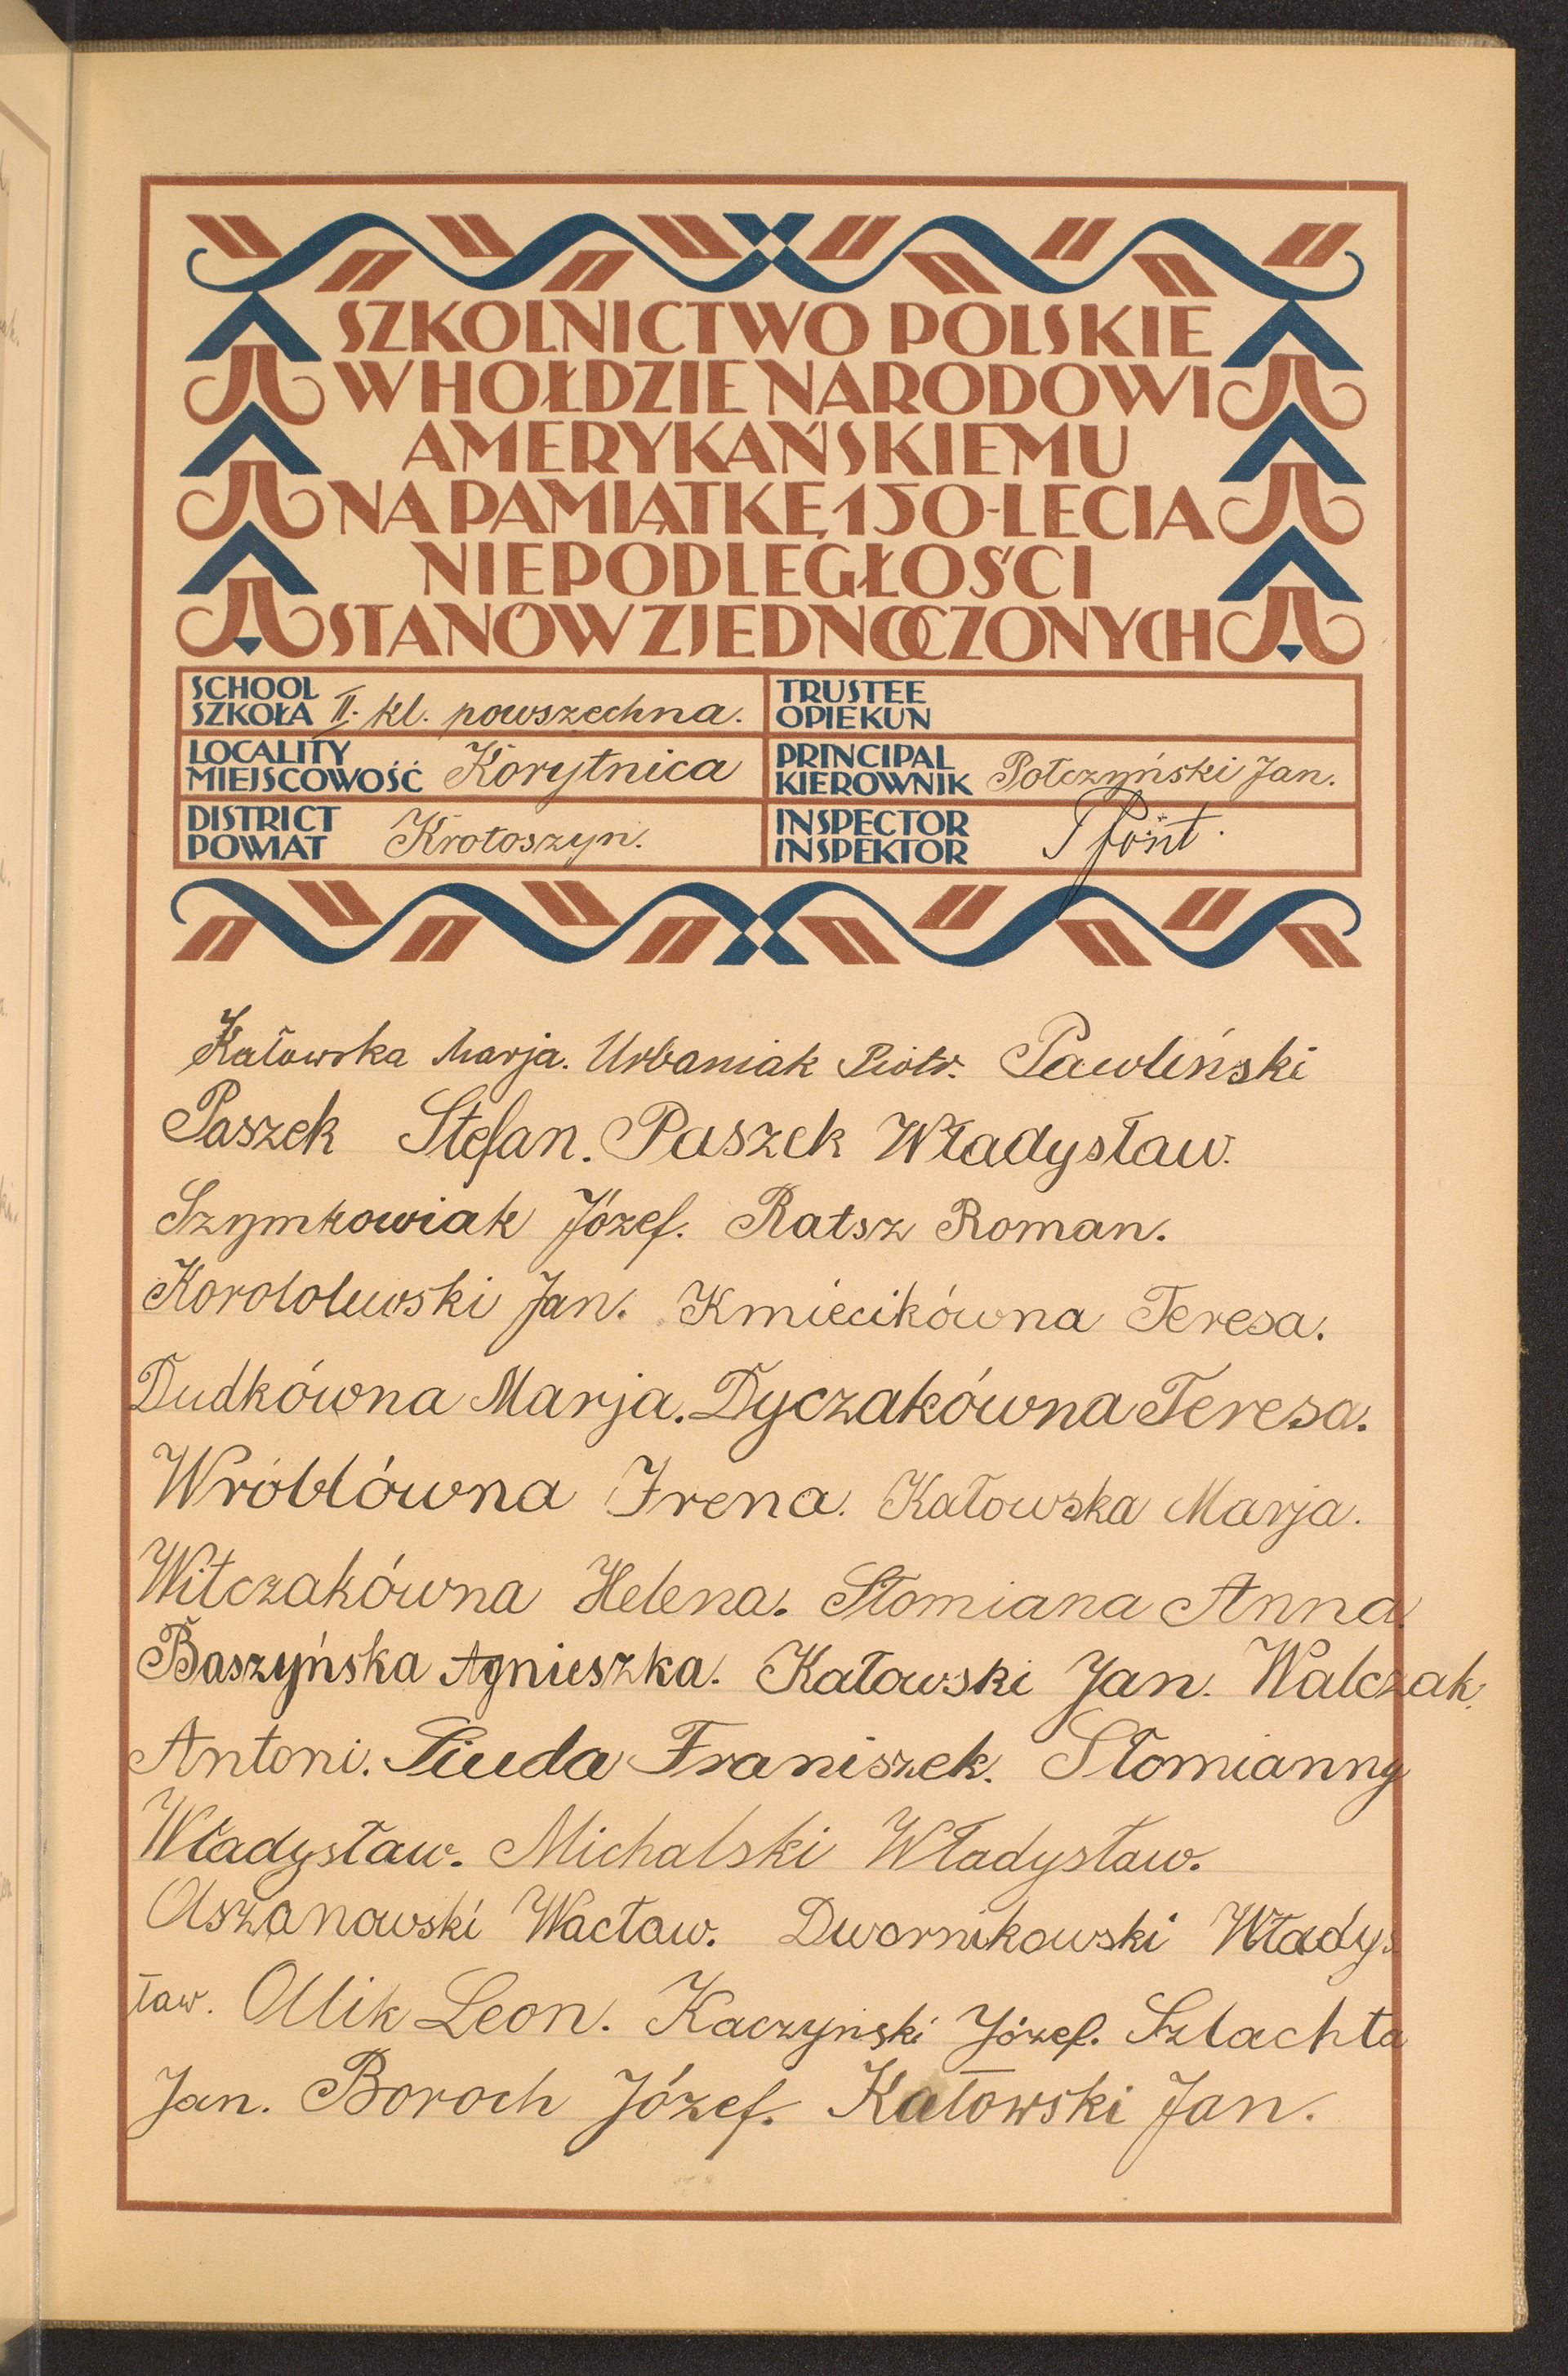 SZKOLNICTWO POLSKIE
W HOŁDZIE NARODOWI
AMERYKAŃSKIEMU
NA PAMIĄTKĘ 150-LECIA
NIEPODLEGŁOŚCI
STANÓW ZJEDNOCZONYCH
SCHOOL
SZKOŁA II. kl. powszechna.
TRUSTEE
OPIEKUN
LOCALITY
MIEJSCOWOŚĆ Korytnica
PRINCIPAL
KIEROWNIK Połczyński Jan.
DISTRICT
POWIAT Krotoszyn.
INSPECTOR
INSPEKTOR
Katowska Marja. Urbaniak Piotr. Pawliński
Paszek Stefan. Paszek Władysław.
Szymkowiak Józef. Ratsz Roman.
Korololewski Jan. Kmiecikówna Teresa.
Dudkówna Marja. Dyczakówna Teresa.
Wróblówna Irena. Katowska Marja.
Witczakówna Helena. Słomiana Anna.
Baszyńska Agnieszka. Katowski Jan. Walczak
Antoni. Siuda Franiszek. Słomianny
Władysław. Michalski Władysław.
Olszanowski Wacław. Dwornikowski Włady-
sław. Ollik Leon. Kaczyński Józef. Szlachta
Jan. Boroch Józef. Katowski Jan.